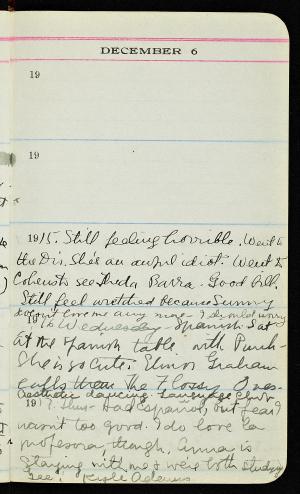 DECEMBER 6
19
19
1915. Still feeling horrible. Went to
the Dr. She's an awful idiot. Went to
see Theda Bara. Good bill.
Still feel wretched because Sunny
doesn't love me any more - I should worry
1916 Wednesday - Spanish. Sat
at the Spanish table with
She is so cute. Elinor Graham
calls them The Flossy
Aesthetic dancing. Language Club.
191 Thurs - Had Espanol, but fear I
wasn't too good. I do love La
profesora, though. Anna is
staying with me & we're both studying